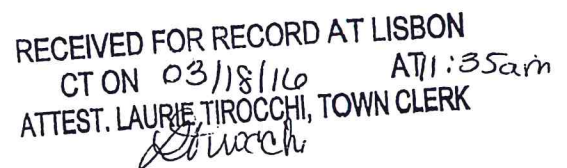 RECEIVED FOR RECORD AT LISBON
CT ON 03/18/16 AT 11:35am
ATTEST. LAURIE TIROCCHI, TOWN CLERK